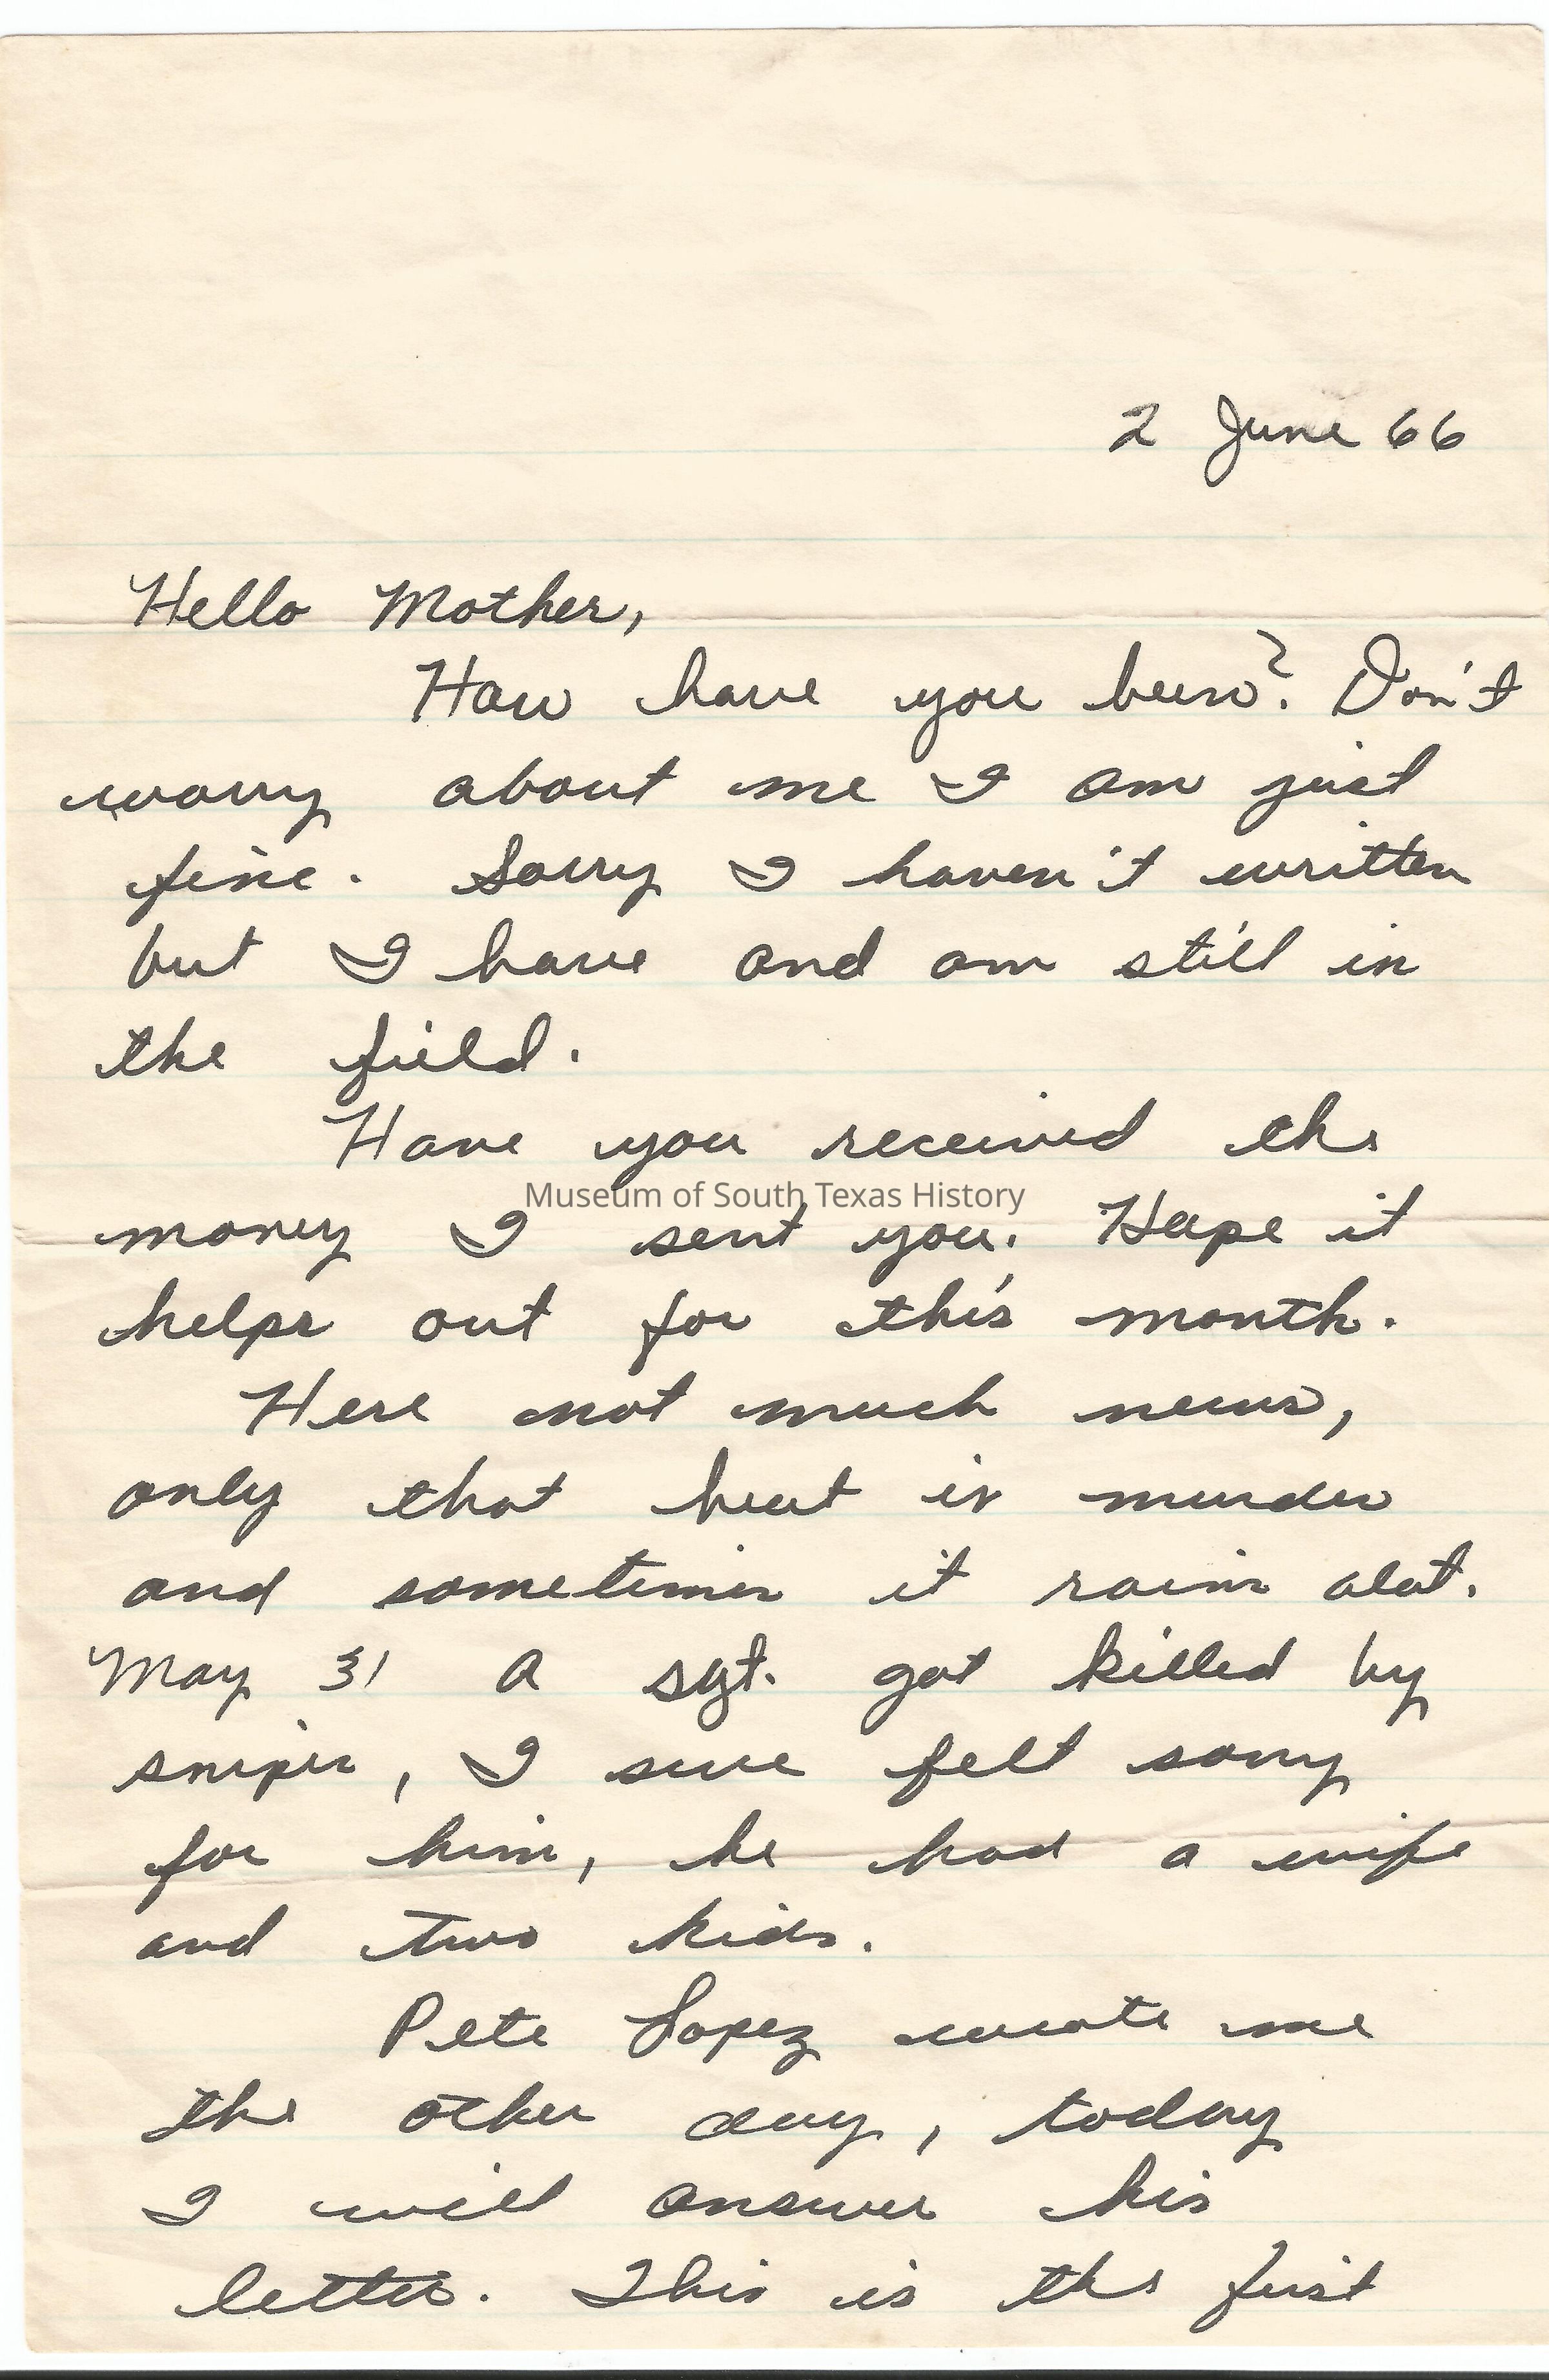 2 June 66
Hello Mother,
How have you been? Don't
worry about me I am just
fine. Sorry I haven't written
but I have and am still in
the field.
Have you received the
Museum of South Texas History
money I sent you. Hope it
helps out for this month.
Here not much news,
only that heat is murder
and sometimes it rains alot.
May 31 a sgt. got killed by
sniper, I sure felt sorry
for him, he had a wife
and two kids.
Pete Lopez wrote me
the other day, today
I will answer his
letter. This is the first